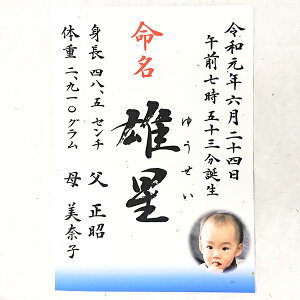 令和元年六月二十四日
午前七時五十三分誕生
命名
雄星
ゆうせい
身長 四八、五 センチ
体重 二、九一〇グラム
父 正昭
母 美奈子